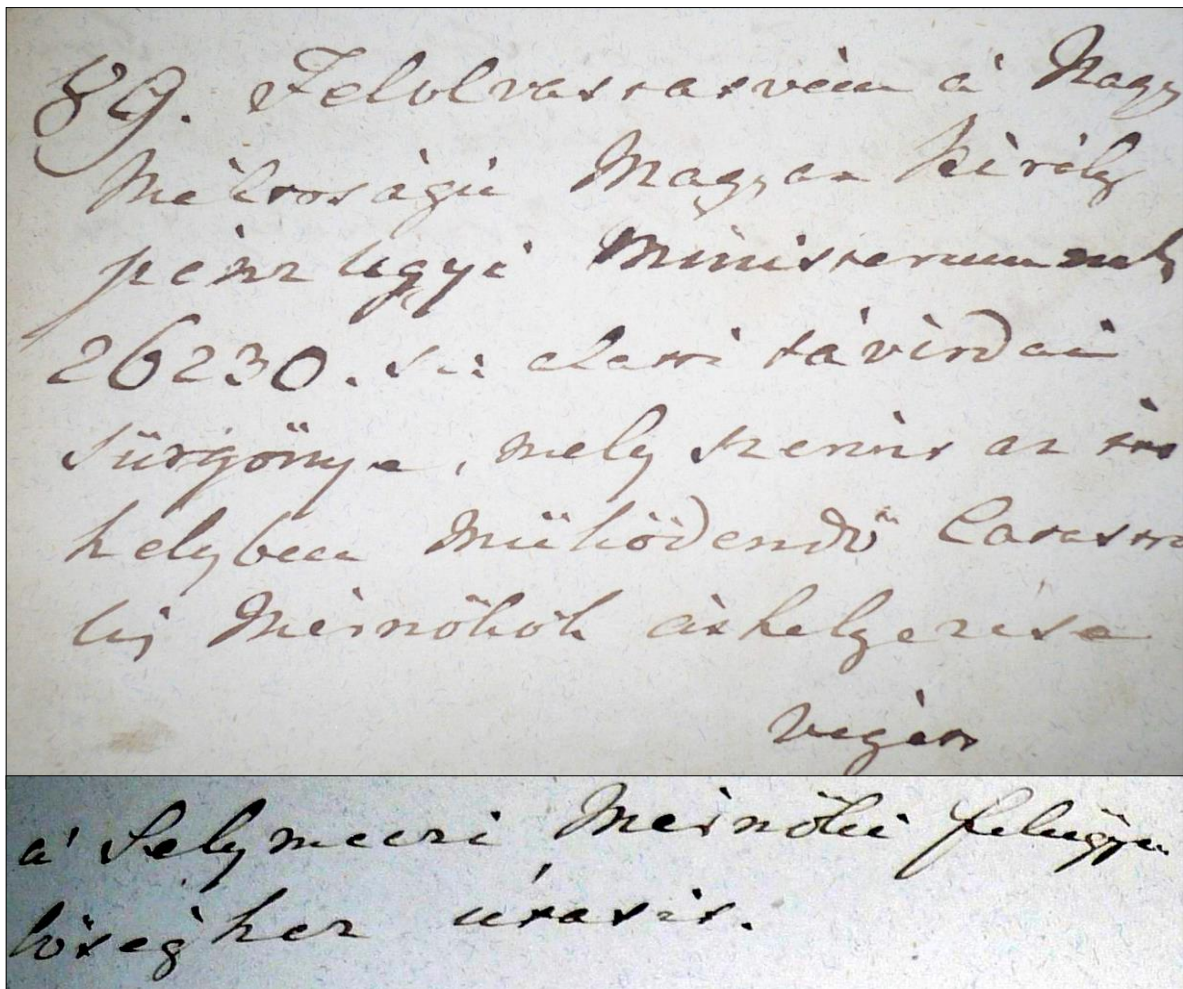 89. Felolvastatván a' Nagy
Méltoságú Magyar Király
pénz ügyi Ministeriumnak
26230. sz: alatti távirdai
sürgönye, mely szerint az
helyben Működendő Catastra
lis Mérnökök áthelyezése
végett
a' Selymeczi Mérnöki felügye
lőséghez utasít.